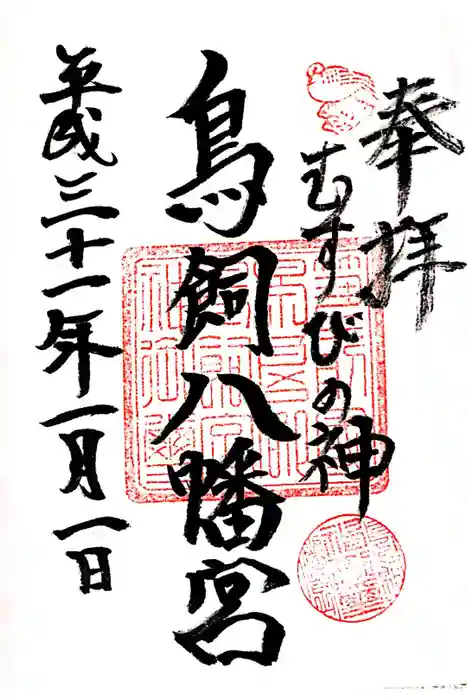 奉拝
むすびの神
鳥飼八幡宮
平成三十一年一月一日